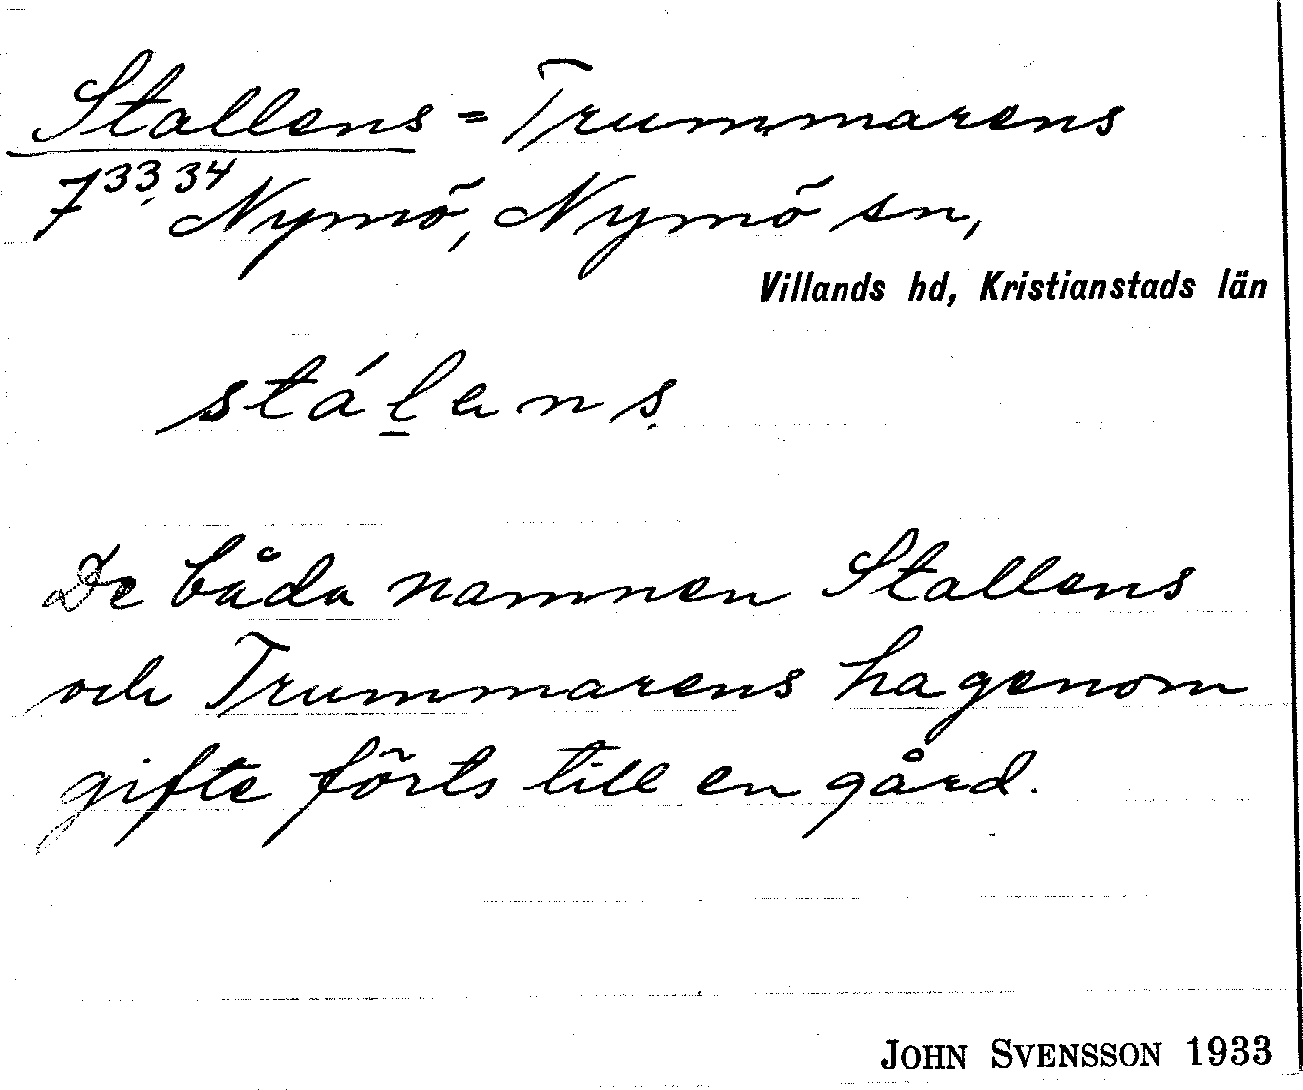 Stallens = Trummarens
7 33, 34 Nymö, Nymö sn,
Villands hd, Kristianstads län
stál̲ens.
De båda namnen Stallens
och Trummarens ha genom
gifte förts till en gård.
JOHN SVENSSON 1933